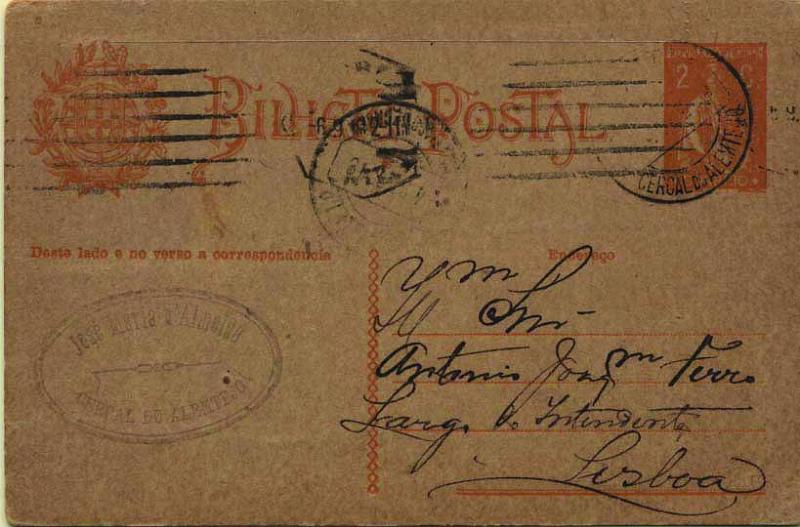 BILHETE POSTAL
2 C.
CERCAL DO ALEMTEJO
Deste lado e no verso a correspondencia
Endereço
José Maria d'Almeida
CERCAL DO ALEMTEJO
Illmo
Snr
Antonio Joaqm Ferro
Largo do Intendente
Lisboa